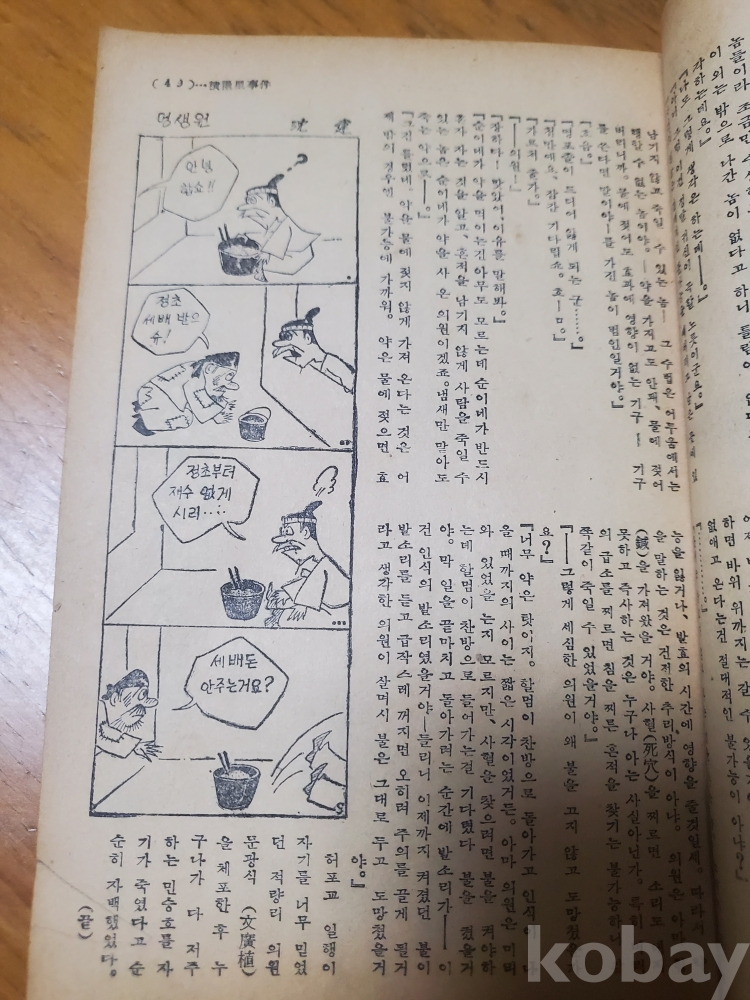 (43)
事件
남기지 않고 죽일 수 있는 놈— 그 수법은 어두움에서는
행할 수 없는 놈이야。—약을 가지고도 안돼。물에 젖어
버리니까。물에 젖어도 효과에 영향이 없는 기구— 기구
를 쓴다면 말이야—를 가진 놈이 범인일거야。』
『흐음。』
『명포졸이 드디어 잃게 되는 군……。』
『천만에요、잠간 기다립쇼。흐—ㅁ。』
『가르쳐 줄가。』
『—의원!』
『잘하다! 맞았어。이유를 말해봐。』
『순이네가 약을 먹이는건 아무도 모르는데 순이네가 반드시
혼자 자는 것을 알고、흔적을 남기지 않게 사람을 죽일 수
있는 놈은 순이네가 약을 사 온 의원이겠죠。냄새만 맡아도
죽는 약으로—。』
『그건 틀렸네。약을 물에 젖지 않게 가져 온다는 것은 어
제 밤의 경우엔 불가능에 가까워。약은 물에 젖으면 효
능을 잃거나、발효의 시간에 영향을 줄것일세。따라서
을 말하는 것은 건전한 추리방식이 아냐。의원은 아마
(鍼)을 가져왔을 거야。사혈(死穴)을 찌르면 소리도
못하고 즉사하는 것은 누구나 아는 사실아닌가。특히
의 급소를 찌르면 침을 찌른 흔적을 찾기는 불가능하니
쪽같이 죽일 수 있었을거야。』
『—그렇게 세심한 의원이 왜 불을 끄지 않고 도망쳤
요?』
『너무 약은 탓이지。할멈이 찬방으로 돌아가고 인식이 나
올 때까지의 사이는 짧은 시각이었거든。아마 의원은 미리
와 있었을 는지 모르지만、사혈을 찾으려면 불을 켜야하
는데 할멈이 찬방으로 들어가는걸 기다렸다 불을 켰을거
야。막 일을 끝마치고 돌아가려는 순간에 발소리가— 이
건 인식의 발소리였을거야—들리니 이제까지 켜졌던 불이
발소리를 듣고 급작스레 꺼지면 오히려 주의를 끌게 될거
라고 생각한 의원이 살며시 불은 그대로 두고 도망쳤을거
야。』
허포교 일행이
자기를 너무 믿었
던 적량리 의원
문광식 (文廣植)
을 체포한 후 누
구나가 다 저주
하는 민승호를 자
기가 죽였다고 순
순히 자백했었다。
(끝)
멍생원
안녕
합쇼!!
정초
세배 받으
슈!
정초부터
재수 없게
시리…..
세배돈
안주는거요?
kobay